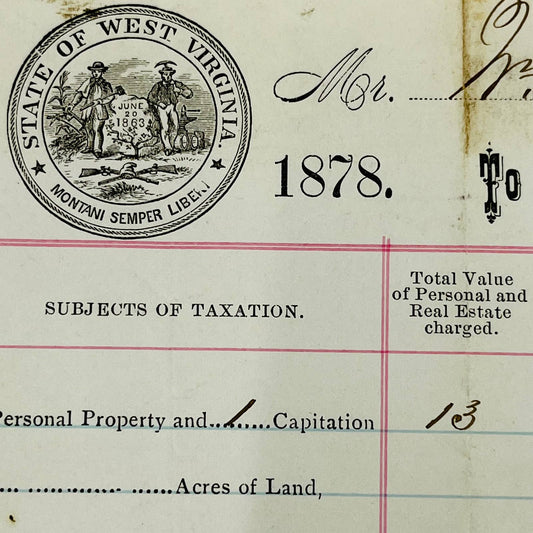 STATE OF WEST VIRGINIA.
JUNE
20
1863
MONTANI SEMPER LIBERI
Mr.
1878. To
SUBJECTS OF TAXATION.
Total Value
of Personal and
Real Estate
charged.
Personal Property and 1 Capitation 13
Acres of Land,